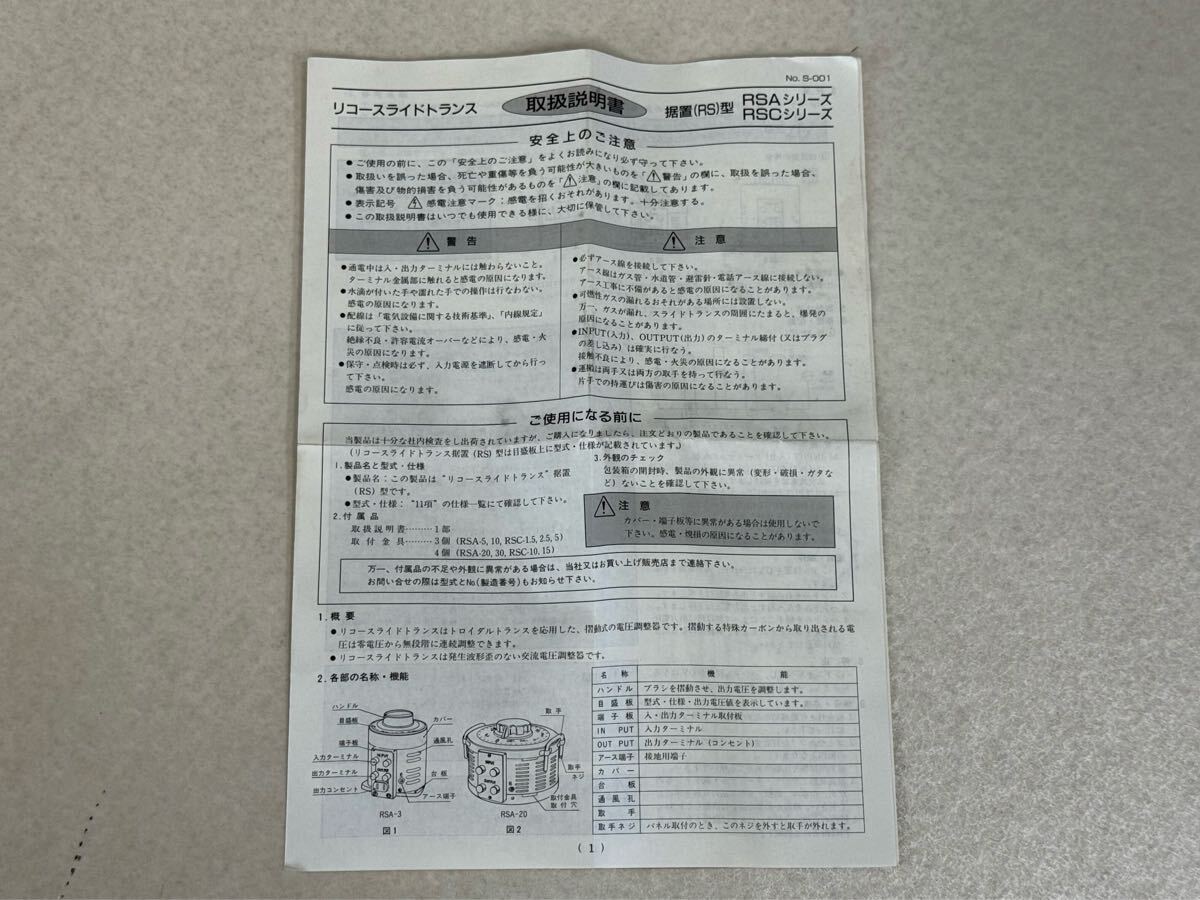 No. S-001
リコースライドトランス
取扱説明書
据置(RS)型
RSAシリーズ
RSCシリーズ
安全上のご注意
●ご使用の前に、この「安全上のご注意」をよくお読みになり必ず守って下さい。
●取扱いを誤った場合、死亡や重傷等を負う可能性が大きいものを「⚠警告」の欄に、取扱を誤った場合、
傷害及び物的損害を負う可能性があるものを「⚠注意」の欄に記載してあります。
●表示記号 感電注意マーク：感電を招くおそれがあります。十分注意する。
●この取扱説明書はいつでも使用できる様に、大切に保管して下さい。
⚠ 警告
●通電中は入・出力ターミナルには触わらないこと。
ターミナル金属部に触れると感電の原因になります。
●水滴が付いた手や濡れた手での操作は行なわない。
感電の原因になります。
●配線は「電気設備に関する技術基準」、「内線規定」
に従って下さい。
絶縁不良・許容電流オーバーなどにより、感電・火
災の原因になります。
●保守・点検時は必ず、入力電源を遮断してから行っ
て下さい。
感電の原因になります。
⚠ 注意
●必ずアース線を接続して下さい。
アース線はガス管・水道管・避雷針・電話アース線に接続しない。
アース工事に不備があると感電の原因になることがあります。
●可燃性ガスの漏れるおそれがある場所には設置しない。
万一、ガスが漏れ、スライドトランスの周囲にたまると、爆発の
原因になることがあります。
●INPUT(入力)、OUTPUT(出力)のターミナル締付(又はプラグ
の差し込み)は確実に行なう。
接触不良により、感電・火災の原因になることがあります。
●運搬は両手又は両方の取手を持って行なう。
片手での持運びは傷害の原因になることがあります。
ご使用になる前に
当製品は十分な社内検査をし出荷されていますが、ご購入になりましたら、注文どおりの製品であることを確認して下さい。
(リコースライドトランス据置(RS)型は目盛板上に型式・仕様が記載されています。)
1.製品名と型式・仕様
●製品名：この製品は"リコースライドトランス"据置
(RS)型です。
●型式・仕様："11項"の仕様一覧にて確認して下さい。
2.付属品
取扱説明書………1部
取付金具………3個(RSA-5, 10, RSC-1.5, 2.5, 5)
4個(RSA-20, 30, RSC-10, 15)
3.外観のチェック
包装箱の開封時、製品の外観に異常(変形・破損・ガタな
ど)ないことを確認して下さい。
⚠ 注意
カバー・端子板等に異常がある場合は使用しないで
下さい。感電・焼損の原因になることがあります。
万一、付属品の不足や外観に異常がある場合は、当社又はお買い上げ販売店まで連絡下さい。
お問い合せの際は型式とNo(製造番号)もお知らせ下さい。
1.概要
●リコースライドトランスはトロイダルトランスを応用した、摺動式の電圧調整器です。摺動する特殊カーボンから取り出される電
圧は零電圧から無段階に連続調整できます。
●リコースライドトランスは発生波形歪のない交流電圧調整器です。
2.各部の名称・機能
ハンドル
目盛板
端子板
入力ターミナル
出力ターミナル
出力コンセント
カバー
通風孔
台板
アース端子
RSA-3
図1
取手
取手
ネジ
取付金具
取付穴
RSA-20
図2
名称 機能
ハンドル ブラシを摺動させ、出力電圧を調整します。
目盛板 型式・仕様・出力電圧値を表示しています。
端子板 入・出力ターミナル取付板
IN PUT 入力ターミナル
OUT PUT 出力ターミナル(コンセント)
アース端子 接地用端子
カバー
台板
通風孔
取手
取手ネジ パネル取付のとき、このネジを外すと取手が外れます。
(1)